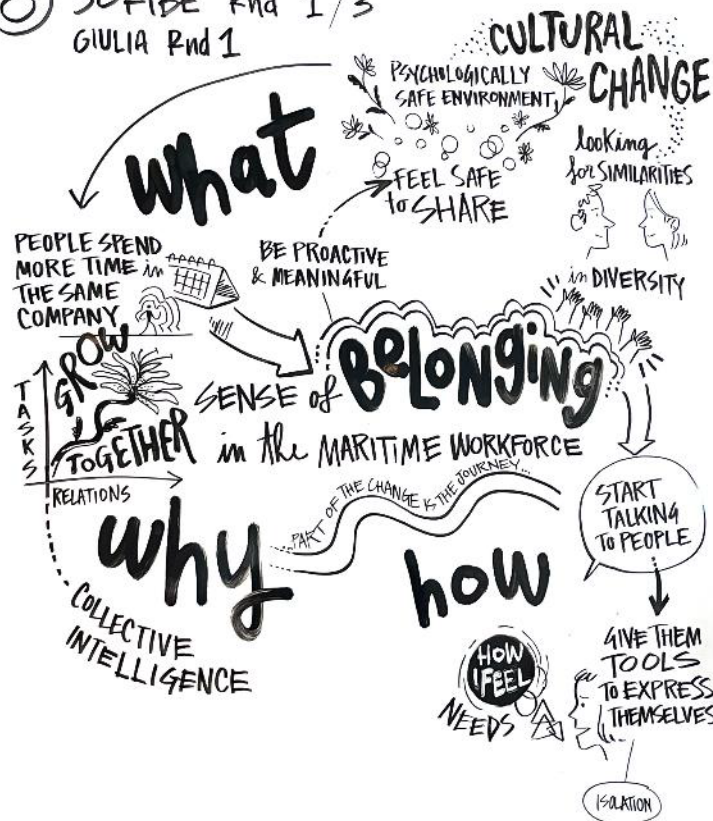 SCRIBE Rnd 1/3
GIULIA Rnd 1
CULTURAL
CHANGE
PSYCHOLOGICALLY
SAFE ENVIRONMENT
what
FEEL SAFE
to SHARE
looking
for SIMILARITIES
in DIVERSITY
PEOPLE SPEND
MORE TIME in
THE SAME
COMPANY
BE PROACTIVE
& MEANINGFUL
GROW
TOGETHER
TASKS
RELATIONS
SENSE of BELONGING
in the MARITIME WORKFORCE
why
...PART OF THE CHANGE IS THE JOURNEY...
COLLECTIVE
INTELLIGENCE
how
START
TALKING
TO PEOPLE
HOW
I FEEL
NEEDS
GIVE THEM
TOOLS
TO EXPRESS
THEMSELVES
ISOLATION